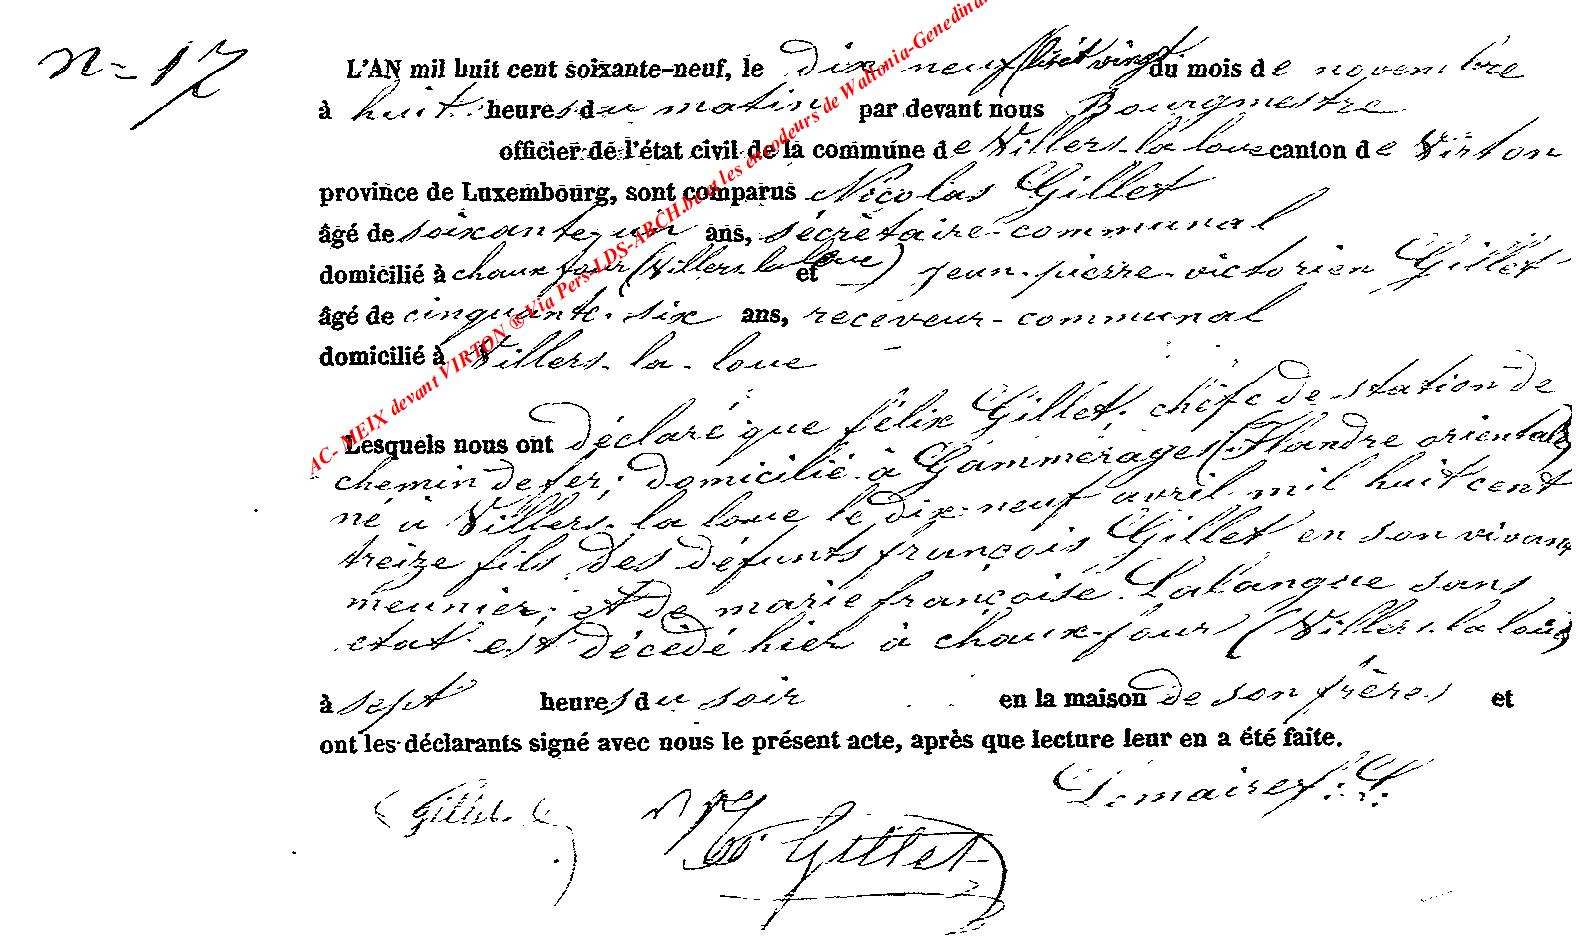 n= 17
L'AN mil huit cent soixante-neuf, le dix neuf (lisez vingt) du mois de novembre
à huit heures du matin par devant nous Bourgmestre
officier de l'état civil de la commune de Villers-la loue canton de Virton
province de Luxembourg, sont comparus Nicolas Gillet
âgé de soixante-un ans, sécrétaire-communal
domicilié à chaux four (Villers-la loue) et jean-pierre-victorien Gillet
âgé de cinquante-six ans, receveur-communal
domicilié à Villers-la-loue
Lesquels nous ont déclaré que félix Gillet, chéfe de station de
chemin de fer; domicilié à Gammerages (Flandre orientale)
né à Villers-la loue le dix-neuf avril mil huit cent
treize fils des défunts françois Gillet en son vivant
meunier; et de marie françoise Lalangue sans
état est décédé hier à chaux-four (Villers-la loue)
à sept heures du soir en la maison de son frère et
ont les déclarants signé avec nous le présent acte, après que lecture leur en a été faite.
Gillet Gillet Lemaire
AC- MEIX devant VIRTON ® Via Pers-LDS-ARCH.be et les encodeurs de Wallonia-Genedinan